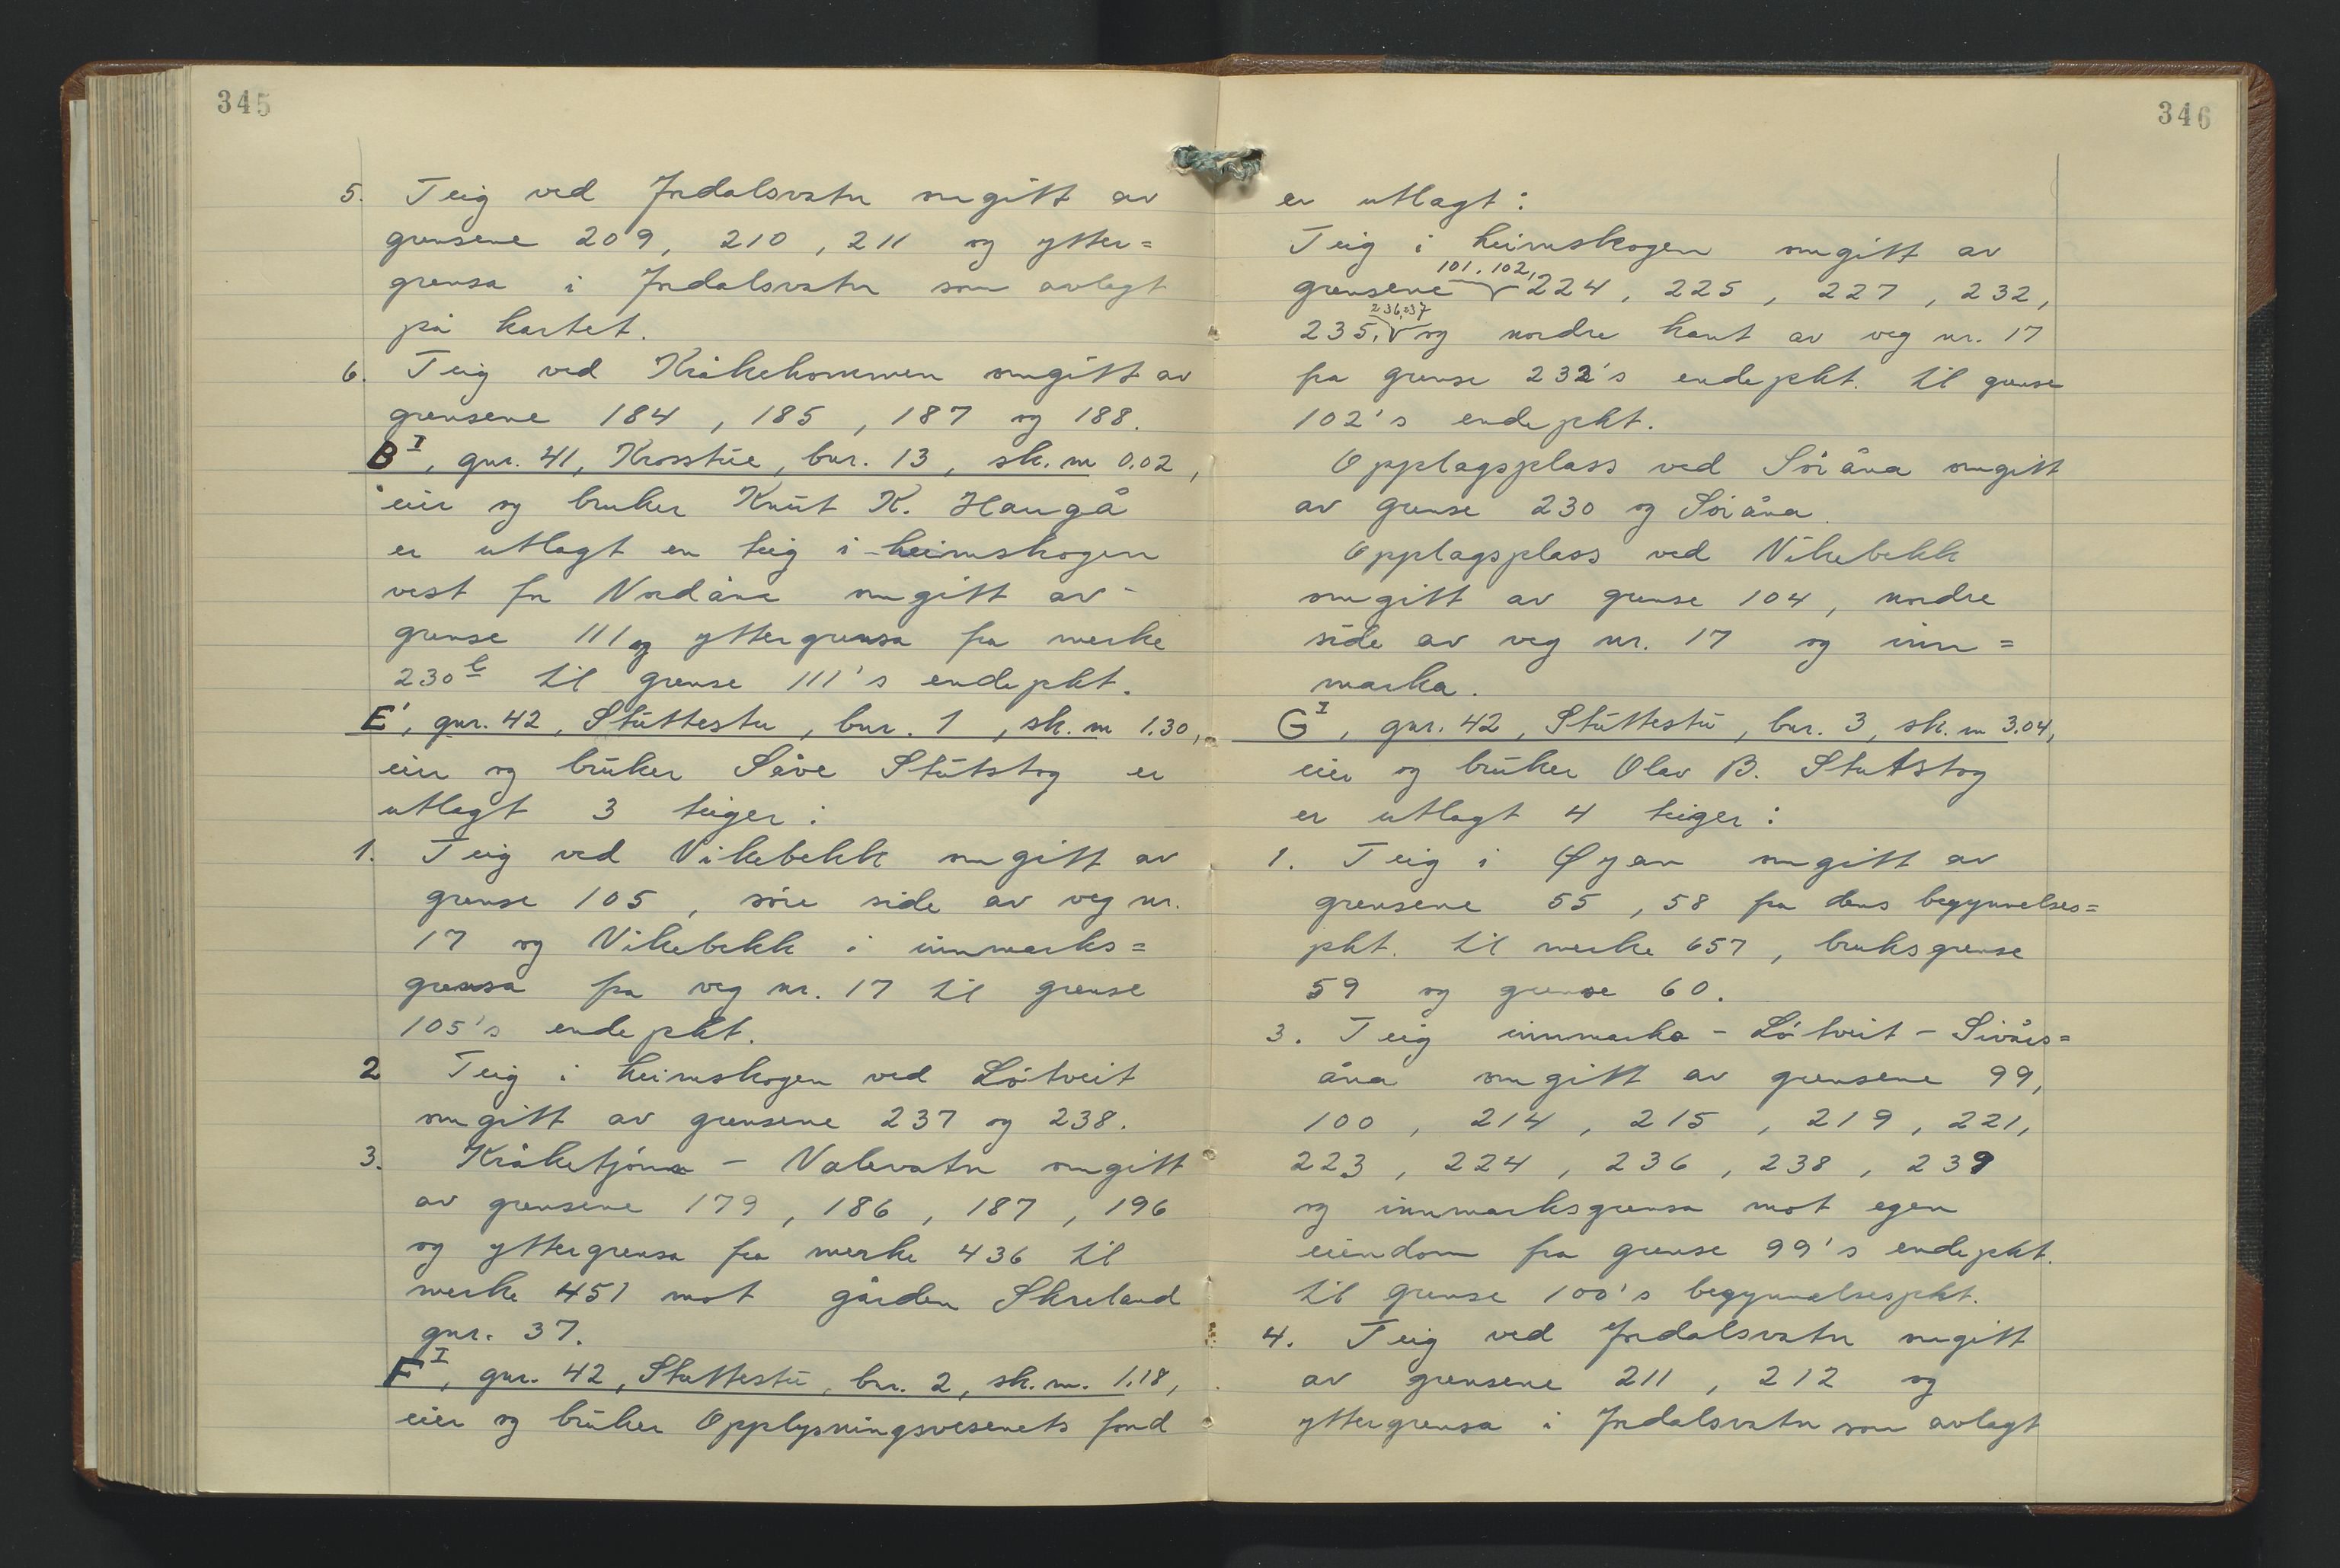 345
5. Teig ved Indalsvatn omgitt av
grensene 209, 210, 211 og ytter=
grensa i Indalsvatn som avlagt
på kartet.
6. Teig ved Kråkehommen omgitt av
grensene 184, 185, 187 og 188.
B I, gnr. 41, Krosstúe, bnr. 13, sk. m 0.02,
eier og bruker Knút K. Haugå
er utlagt en teig i heimskogen
vest for Nordåna omgitt av
grense 111 og yttergrensa fra merke
230 b til grense 111's endepkt.
E', gnr. 42, Stúttestu, bnr. 1, sk. m 1.30,
eier og brúker Såve Stútstog er
utlagt 3 teiger:
1. Teig ved Vikebekk omgitt av
grense 105, söre side av veg nr.
17 og Vikebekk i innmarks=
grensa fra veg nr. 17 til grense
105's endepkt.
2 Teig i heimskogen ved Lötveit
omgitt av grensene 237 og 238.
3. Kråketjönn - Valevatn omgitt
av grensene 179, 186, 187, 196
og yttergrensa fra merke 436 til
merke 451 mot gården Skreland
gnr. 37.
F I, gnr. 42, Stuttestú, bnr. 2, sk. m. 1.18,
eier og brúker Opplysningsvesenets fond
346
er utlagt:
Teig i heimskogen omgitt av
101, 102,
grensene 224, 225, 227, 232,
236, 237
235, og nordre kant av veg nr. 17
fra grense 232's endepkt. til grense
102's endepkt.
Opplagsplass ved Söråna omgitt
av grense 230 og Söråna.
Opplagsplass ved Vikebekk
omgitt av grense 104, nordre
side av veg nr. 17 og inn=
marka.
G I, gnr. 42, Stúttestú, bnr. 3, sk. m 3.04,
eier og brúker Olav B. Stutstog
er utlagt 4 teiger:
1. Teig i Øyan omgitt av
grensene 55, 58 fra dens begynnelses=
pkt. til merke 657, bruksgrense
59 og grense 60.
3. Teig innmarka - Lötveit - Sivårs=
åna omgitt av grensene 99,
100, 214, 215, 219, 221,
223, 224, 236, 238, 239
og innmarksgrensa mot egen
eiendom fra grense 99's endepkt.
til grense 100's begynnelsespkt.
4. Teig ved Indalsvatn omgitt
av grensene 211, 212 og
yttergrensa i Indalsvatn som avlagt